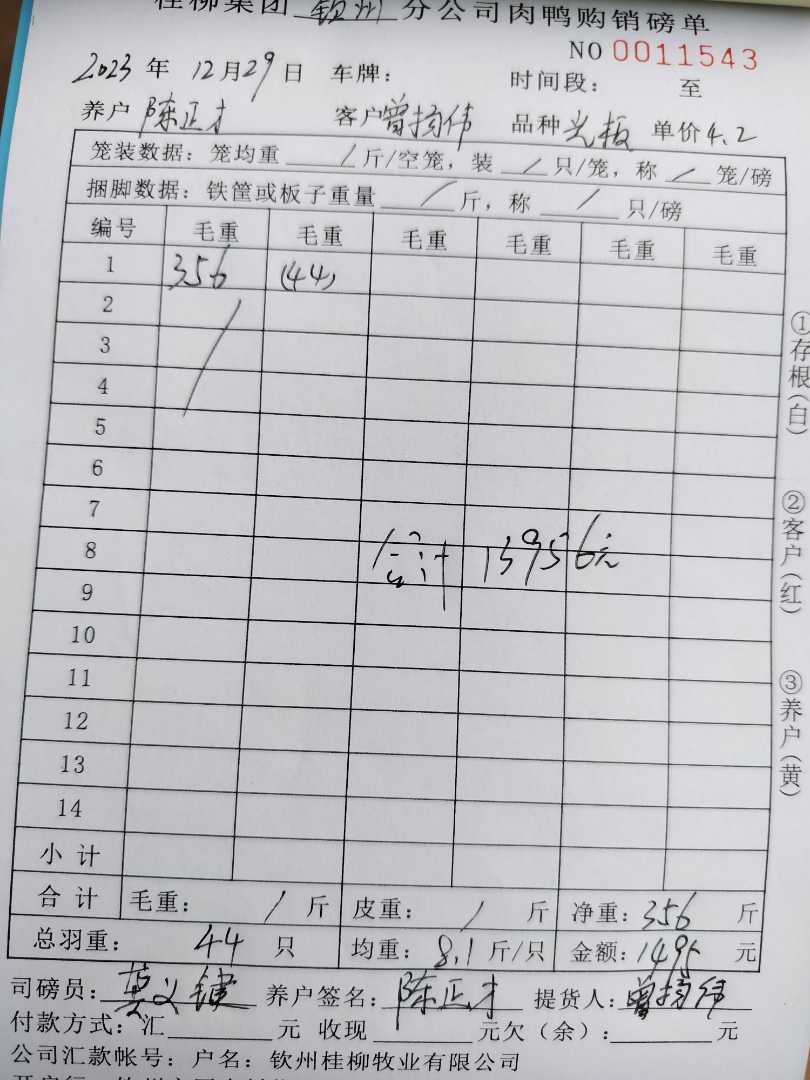 桂柳集团 钦州 分公司肉鸭购销磅单
NO 0011543
2023 年 12月29日 车牌： 时间段： 至
养户 陈正才 客户 曾 伟 品种 光板 单价4.2
笼装数据：笼均重 / 斤/空笼，装 / 只/笼，称 / 笼/磅
捆脚数据：铁筐或板子重量 / 斤，称 / 只/磅
编号 毛重 毛重 毛重 毛重 毛重 毛重
1 356 (44)
2
3
4
5
6
7
8 合计 13956元
9
10
11
12
13
14
小计
合计 毛重： / 斤 皮重： / 斤 净重：356 斤
总羽重： 44 只 均重：8.1 斤/只 金额：1495 元
司磅员：莫义健 养户签名：陈正才 提货人：曾 伟
付款方式：汇 元 收现 元欠（余）： 元
公司汇款帐号：户名：钦州桂柳牧业有限公司
①存根（白）
②客户（红）
③养户（黄）